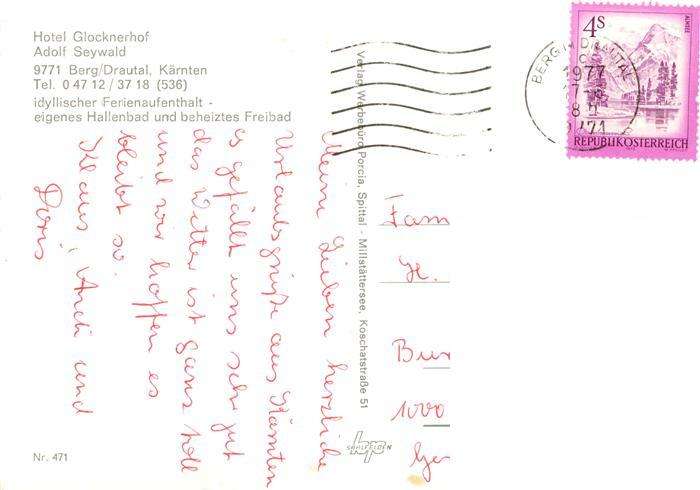 Hotel Glocknerhof
Adolf Seywald
9771 Berg/Drautal, Kärnten
Tel. 0 47 12 / 37 18 (536)
idyllischer Ferienaufenthalt -
eigenes Hallenbad und beheiztes Freibad
Meine Lieben herzliche
Urlaubsgrüße aus Kärnten
es gefällt uns sehr gut
das Wetter ist ganz toll
und wir hoffen es
bleibt so.
Klaus, und
Doris
Nr. 471
Verlag Werbebüro Porcia, Spittal - Millstättersee, Koschatstraße 51
hp
SAALFELDEN
Fam
H.
Bur
1000
4 S
ALMSEE
REPUBLIK ÖSTERREICH
BERG IM DRAUTAL
1977
9771